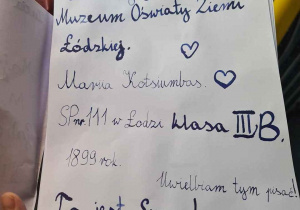 Muzeum Oświaty Ziemi
Łódzkiej.
Maria Kotsiumbas.
SP nr 111 w Łodzi klasa III B.
1899 rok.
Uwielbiam tym pisać!
To jest